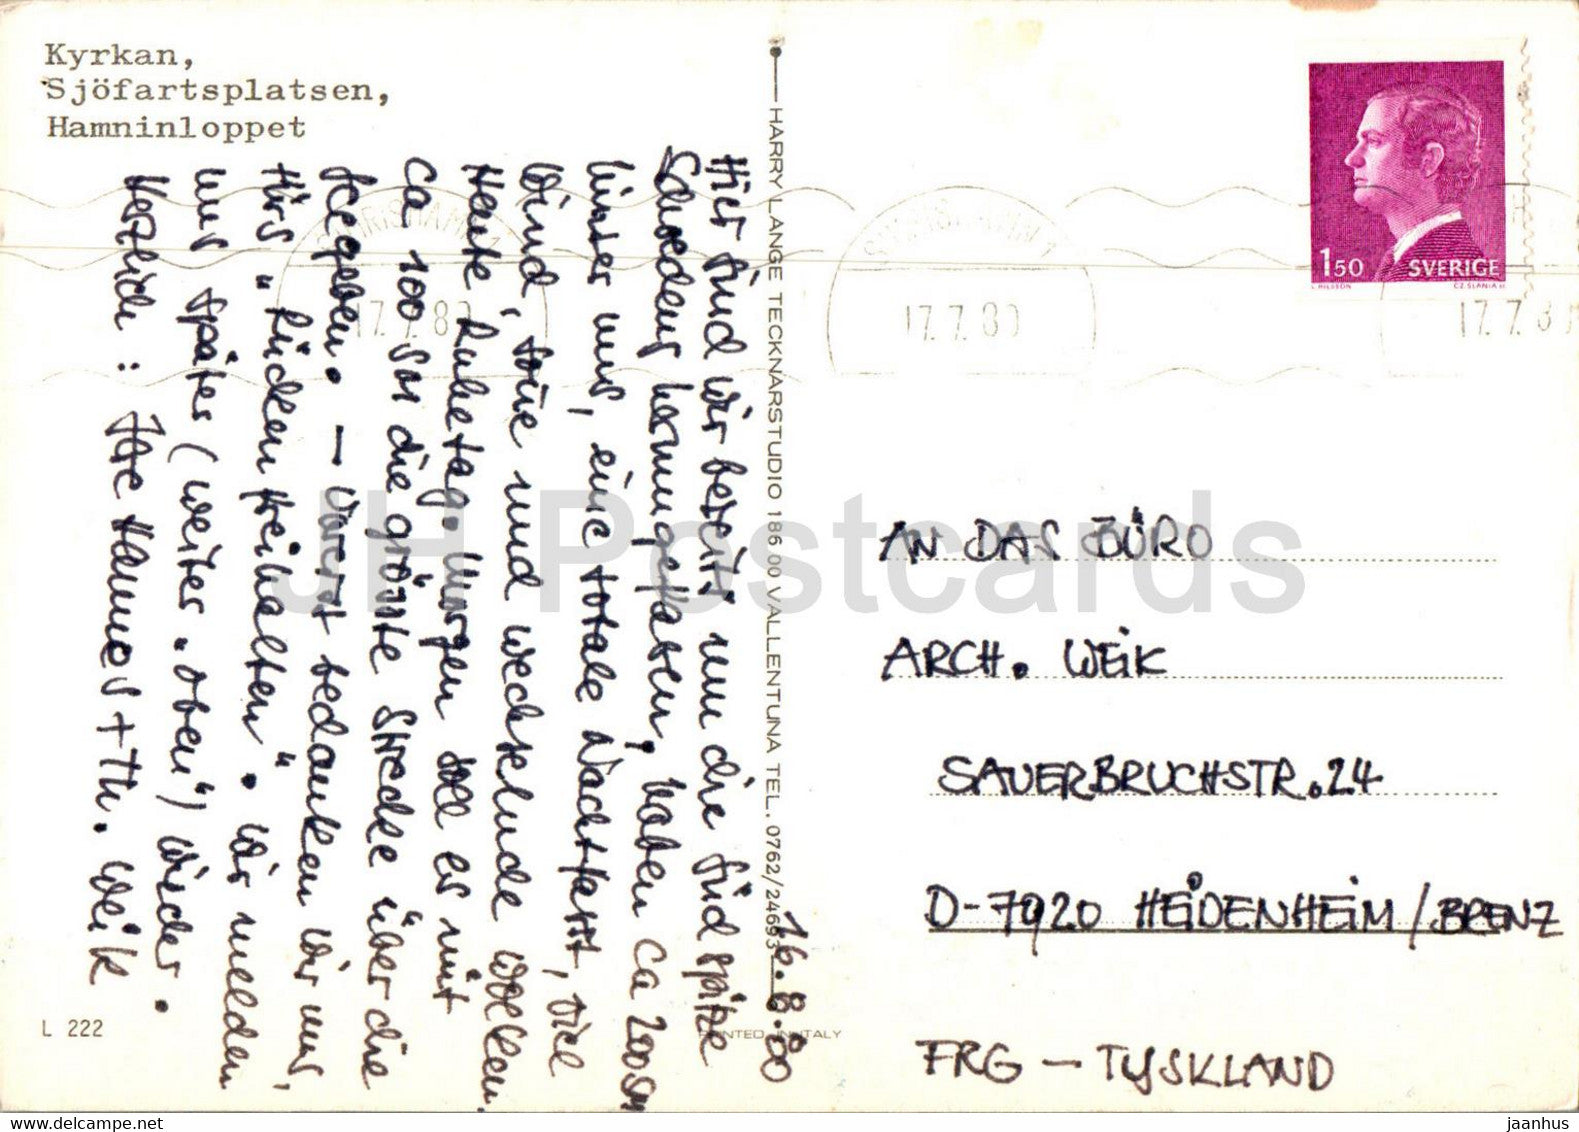 Kyrkan,
Sjöfartsplatsen,
Hamninloppet
HARRY LANGE TECKNARSTUDIO 186 00 VALLENTUNA TEL. 0762/24693
16.8.80
Hier sind wir bereits um die Südspitze
Schwedens herumgefahren, haben ca 200 sm
hinter uns, eine totale Nachtfahrt, viel
Wind, Sonne und wechselnde Wolken.
Heute Ruhetag. Morgen soll es mit
ca 100 sm die größte Strecke über die
See gehen. – Vorerst bedanken wir uns,
fürs "Rücken freihalten". Wir melden
uns später (weiter "oben") wieder.
Herzlich: Ihre Hannos + Th. Weik
17.7.80
17.7.80
17.7.80
1.50 SVERIGE
CZ. SLANIA sc.
AN DAS BÜRO
ARCH. WEIK
SAUERBRUCHSTR. 24
D-7920 HEIDENHEIM/BRENZ
FRG – TYSKLAND
L 222
PRINTED IN ITALY
JH Postcards
https://www.jaanhus.com